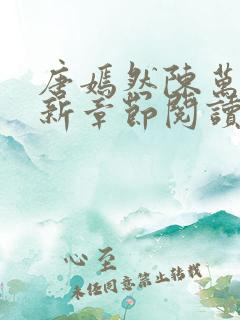 唐嫣然陳蕭
新章節閱讀
心至
未經同意禁止轉載